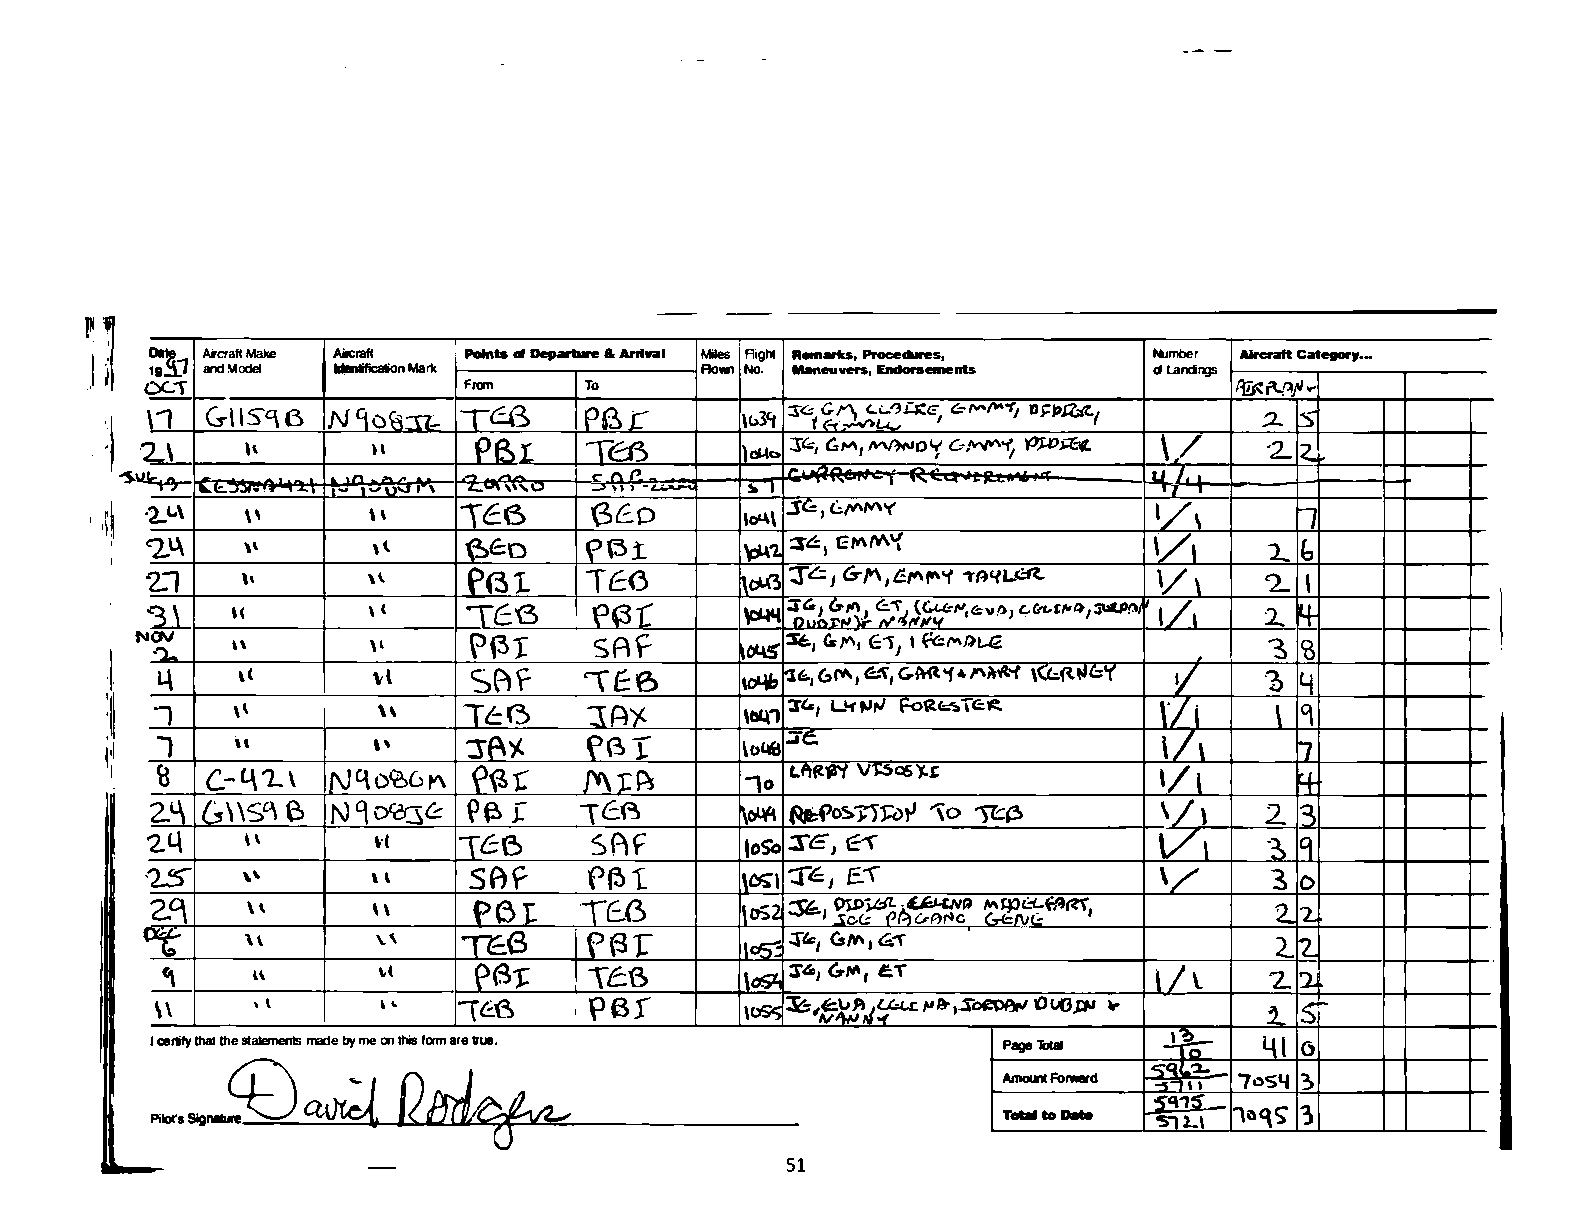 Date Aircraft Make Aircraft Points of Departure & Arrival Miles Flight Remarks, Procedures, Number Aircraft Category...
1997 and Model Identification Mark Flown No. Maneuvers, Endorsements of Landings
OCT From To AIRPLANE
17 G1159B N908JE TEB PBI 1039 JE, GM, CLAIRE, EMMY, DIDIER, 2 5
1 FEMALE
21 " " PBI TEB 1040 JE, GM, MANDY EMMY, DIDIER 1/ 2 2
JUL 19 CESSNA 421 N908GM ZORRO SAF 57 CURRENCY REQUIREMENT 4/4
24 " " TEB BED 1041 JE, EMMY 1/1 7
24 " " BED PBI 1042 JE, EMMY 1/1 2 6
27 " " PBI TEB 1043 JE, GM, EMMY TAYLER 1/1 2 1
31 " " TEB PBI 1044 JE, GM, ET, (GLEN, EVA, CELINA, JORDAN 1/1 2 4
DUBIN) + NANNY
NOV
2 " " PBI SAF 1045 JE, GM, ET, 1 FEMALE 3 8
4 " " SAF TEB 1046 JE, GM, ET, GARY + MARY KERNEY 1/ 3 4
7 " " TEB JAX 1047 JE, LYNN FORESTER 1/1 1 9
7 " " JAX PBI 1048 JE 1/1 7
8 C-421 N908GM PBI MIA 70 LARRY VISOSKI 1/1 4
24 G1159B N908JE PBI TEB 1049 REPOSITION TO TEB 1/1 2 3
24 " " TEB SAF 1050 JE, ET 1/1 3 9
25 " " SAF PBI 1051 JE, ET 1/ 3 0
29 " " PBI TEB 1052 JE, DIDIER, CELINA MIDELFART, 2 2
JOE PAGANO, GENE
DEC
6 " " TEB PBI 1053 JE, GM, ET 2 2
9 " " PBI TEB 1054 JE, GM, ET 1/1 2 2
11 " " TEB PBI 1055 JE, EVA, CELINA, JORDAN DUBIN + 2 5
NANNY
I certify that the statements made by me on this form are true. Page Total 13/10 41 0
Amount Forward 5962/5711 7054 3
Pilot's Signature David Rodgers Total to Date 5975/5721 7095 3
51